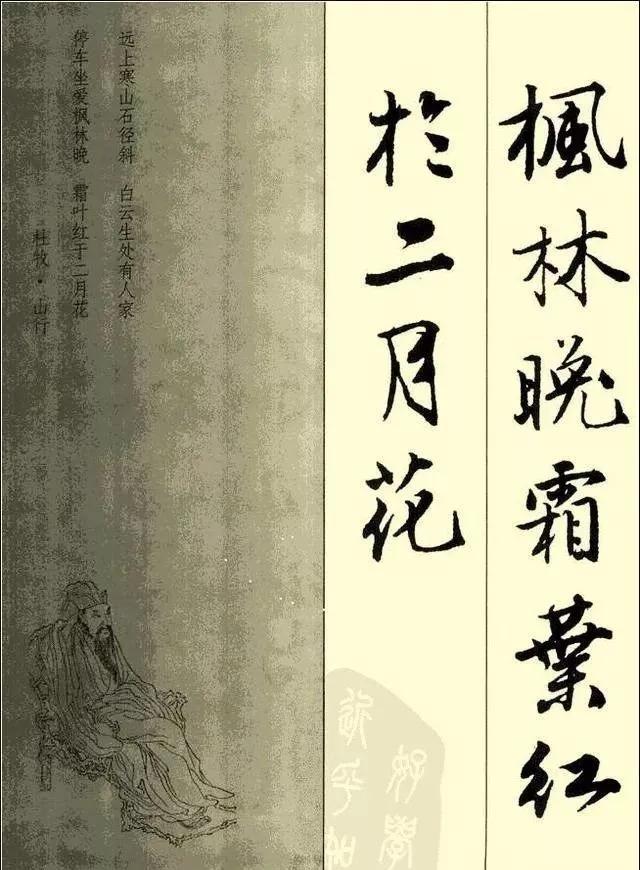 楓林晚霜葉紅
於二月花
远上寒山石径斜 白云生处有人家
停车坐爱枫林晚 霜叶红于二月花
杜牧·山行
好學
近乎知